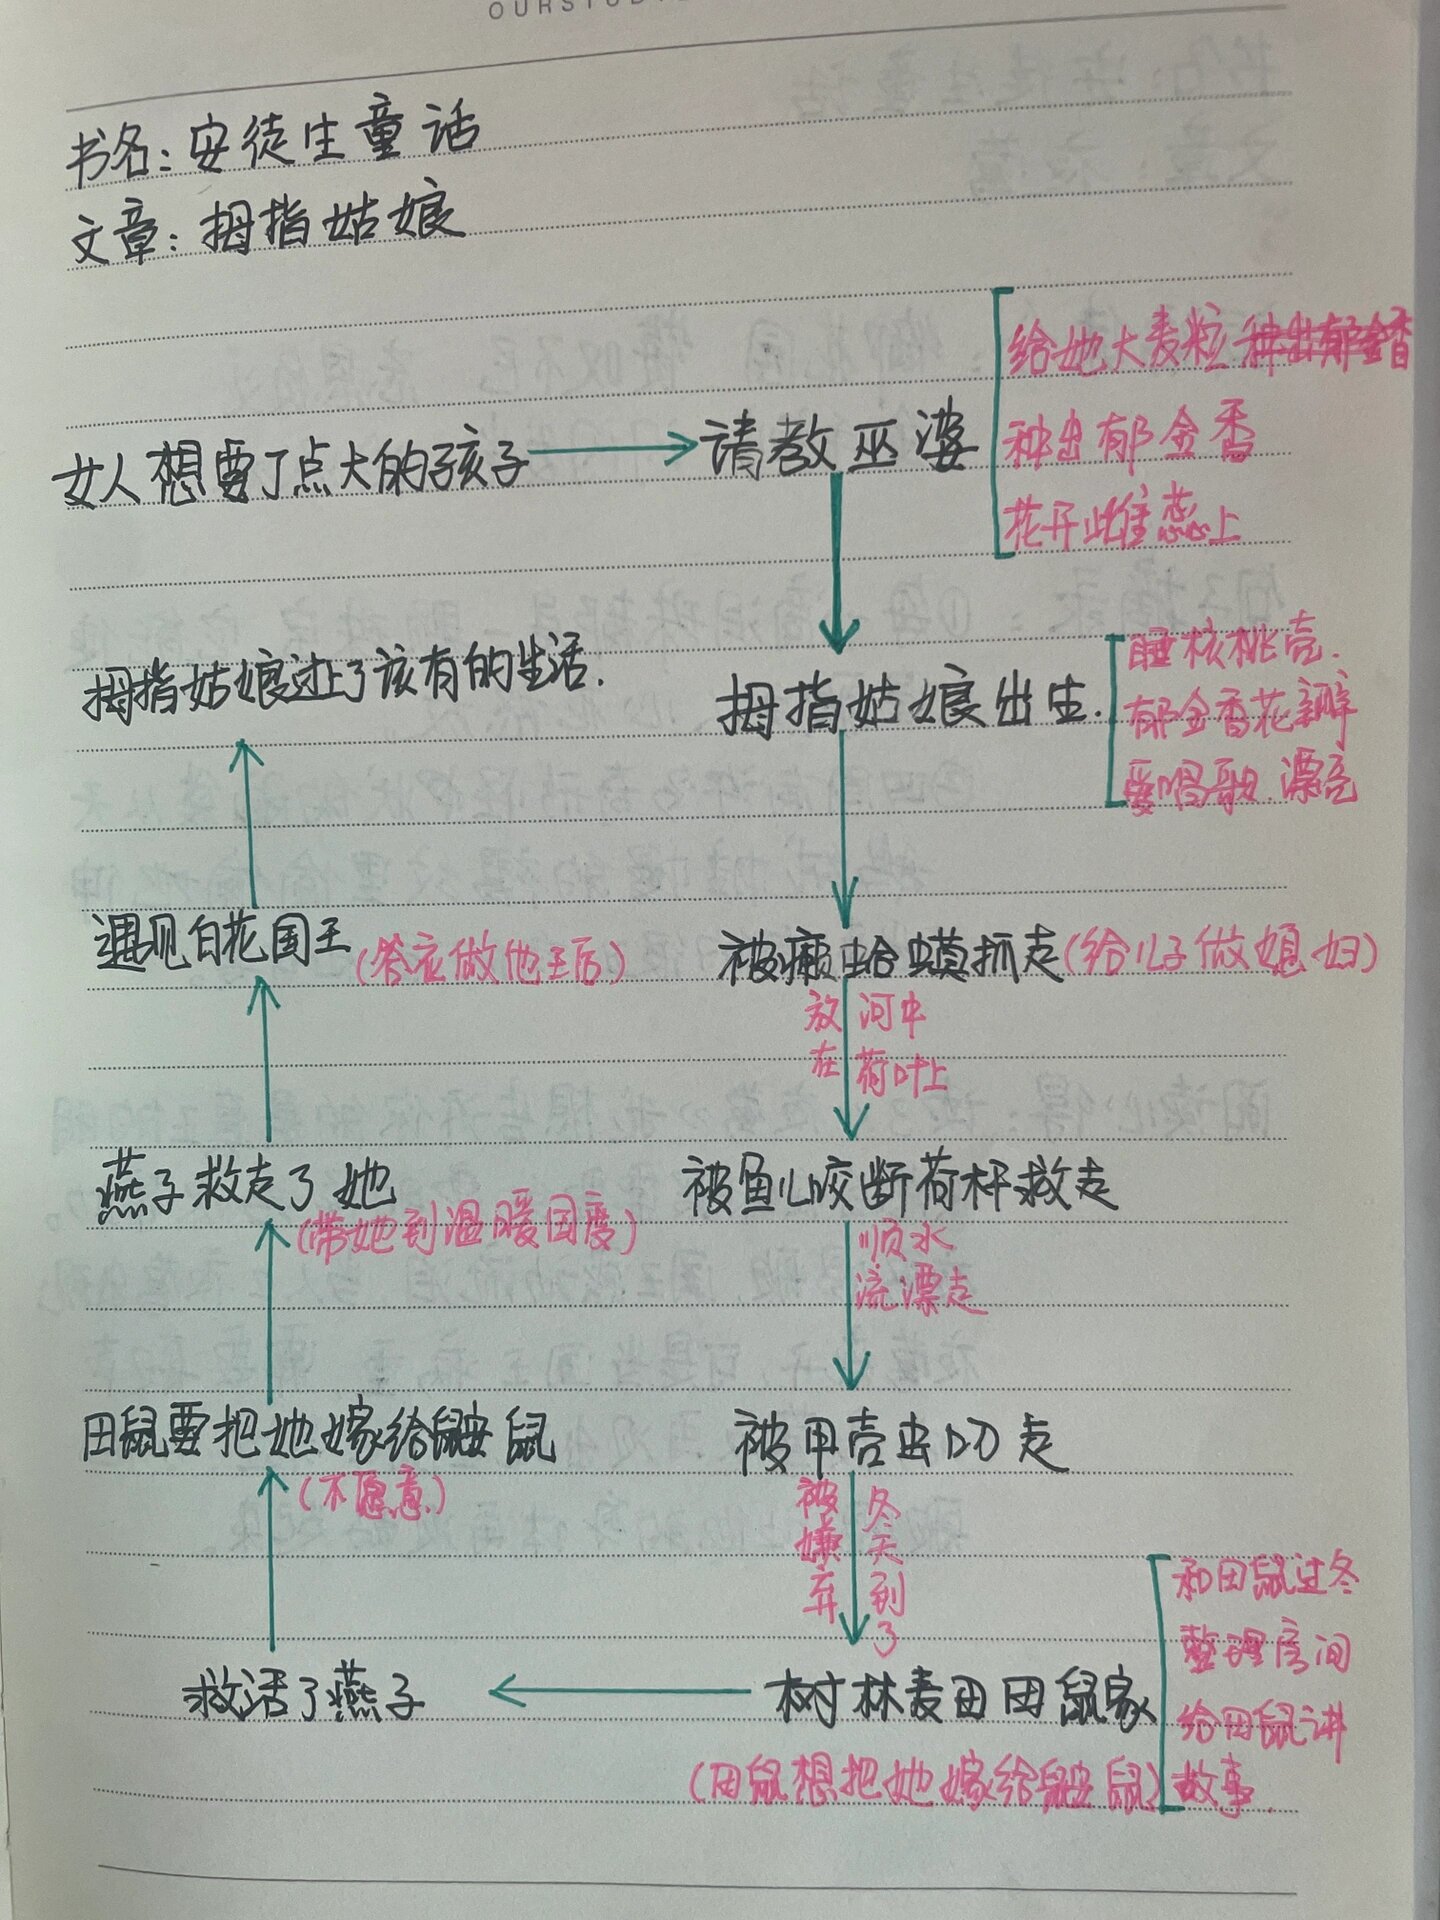 书名：安徒生童话
文章：拇指姑娘
女人想要丁点大的孩子
请教巫婆
给她大麦粒
种出郁金香
种出郁金香
花开雌蕊上
拇指姑娘出生.
睡核桃壳.
郁金香花瓣
爱唱歌.漂亮
被癞蛤蟆抓走(给儿子做媳妇)
放在
河中荷叶上
被鱼儿咬断荷杆救走
顺水
流漂走
被甲壳虫叼走
被嫌弃
冬天到了
树林麦田田鼠家
和田鼠过冬
整理房间
给田鼠讲
故事.
(田鼠想把她嫁给鼹鼠)
救活了燕子
田鼠要把她嫁给鼹鼠
(不愿意.)
燕子救走了她
(带她到温暖国度)
遇见白花国王
(答应做他王后)
拇指姑娘过上了该有的生活.